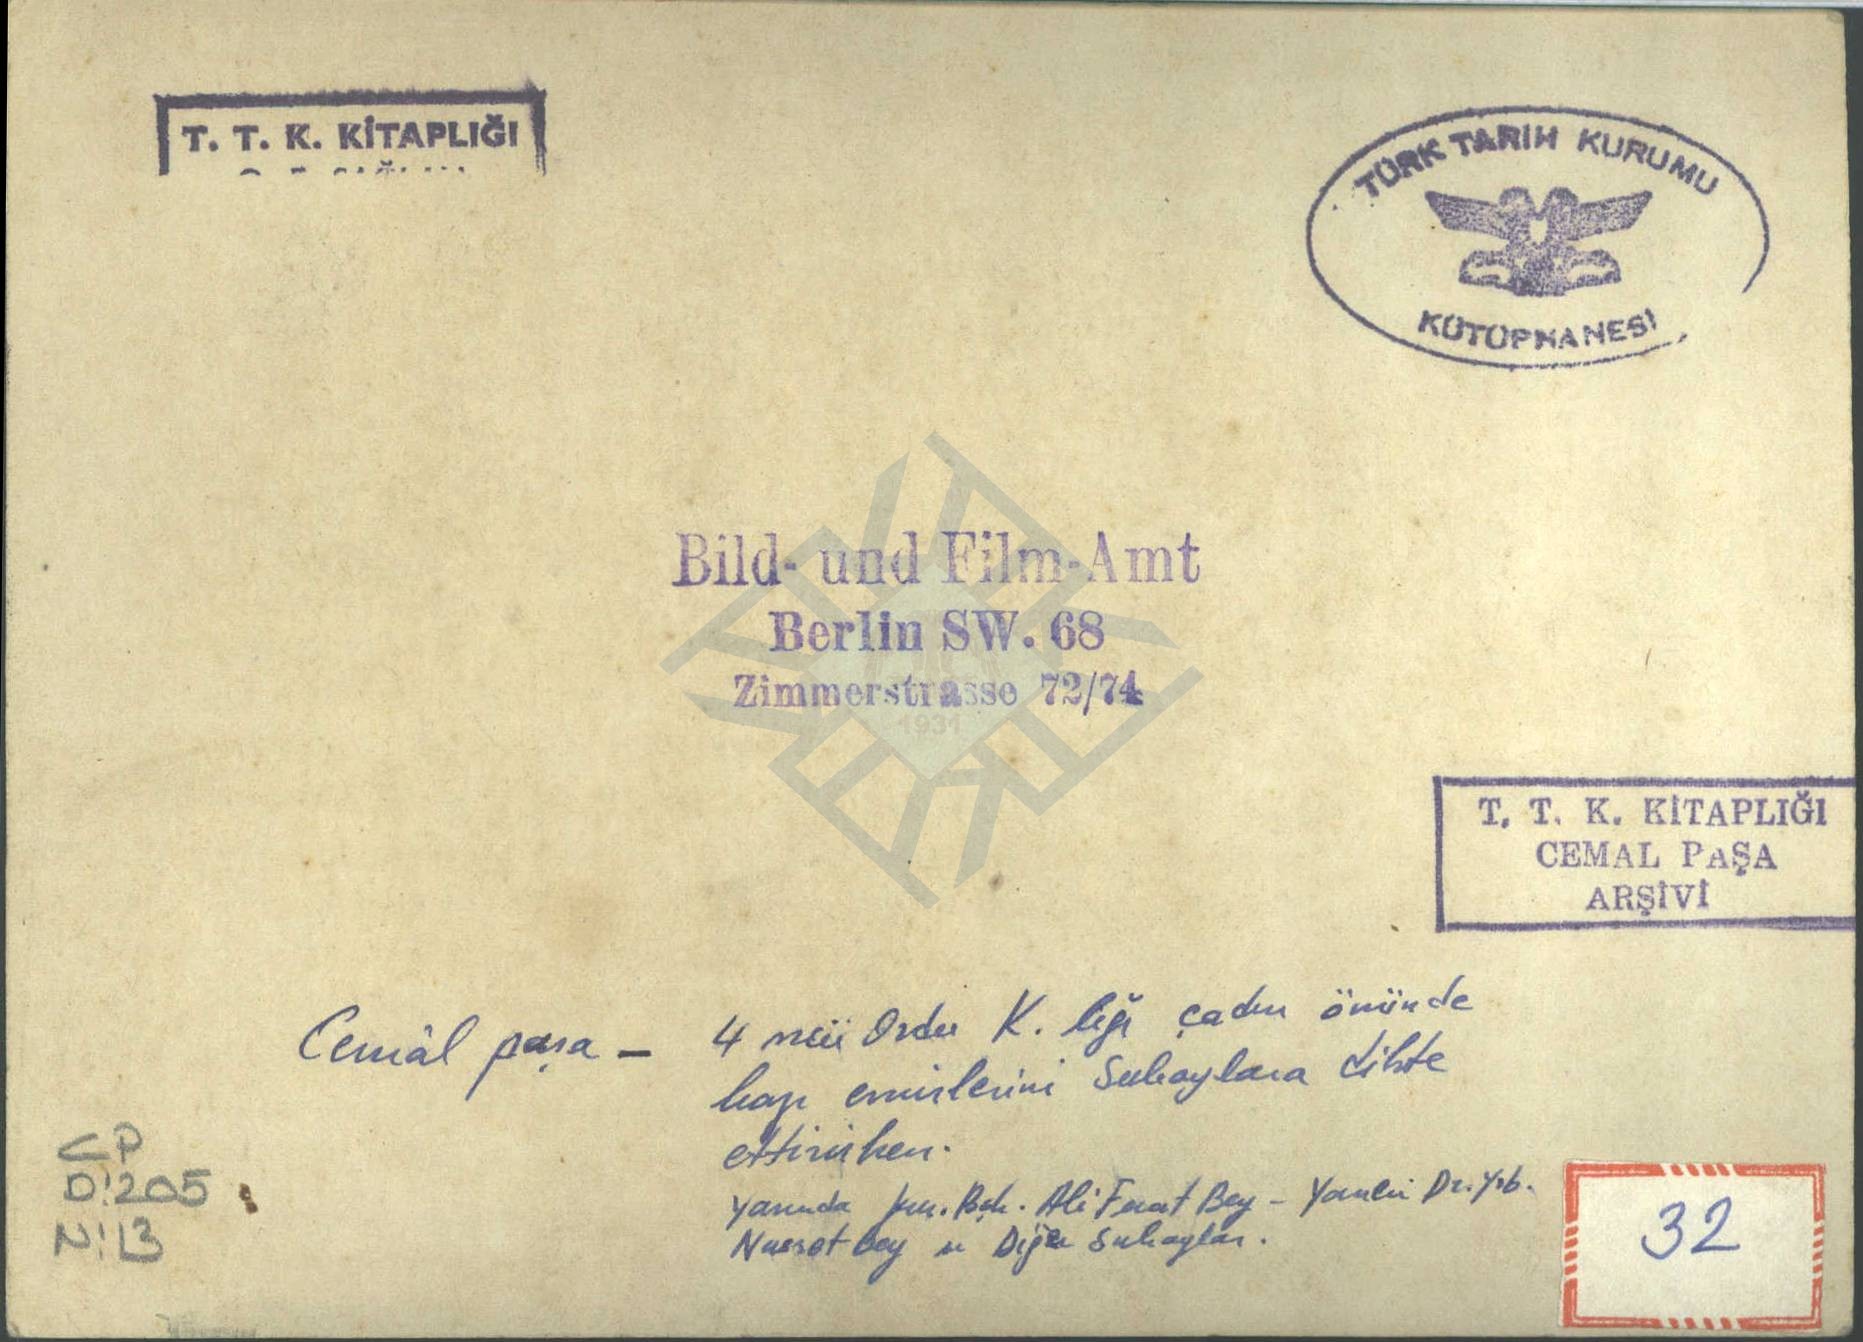 T. T. K. KİTAPLIĞI
TÜRK TARİH KURUMU
KÜTÜPHANESİ
Bild- und Film-Amt
Berlin SW. 68
Zimmerstrasse 72/74
1931
T. T. K. KİTAPLIĞI
CEMAL PAŞA
ARŞİVİ
Cemâl paşa – 4 ncü Ordu K. lığı çadırı önünde
bazı emirlerini Subaylara dikte
ettirirken.
Yanında Kur. Bşk. Ali Fuat Bey – Yaveri Dz. Yzb.
Nusret bey ve Diğer Subaylar.
CP
D:205
N:13
32